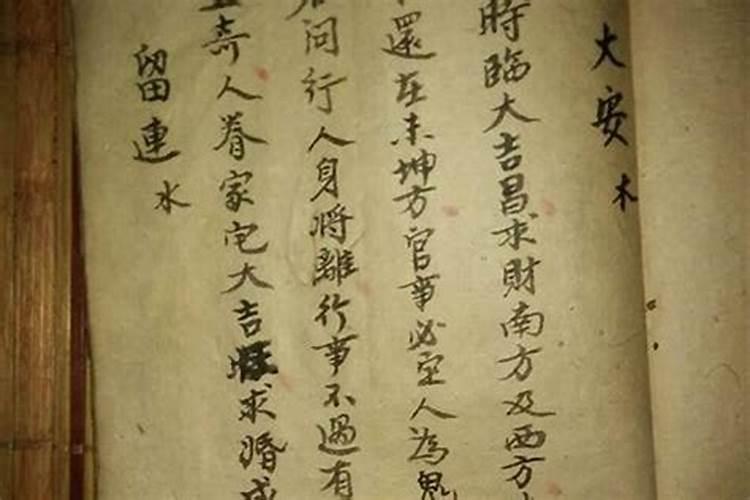 大安 木
時臨大吉昌求財南方及西方
還在未坤方官事必定人為鬼
問行人身将離行事不過有
奇人眷家宅大吉旺求婚成
留連 水